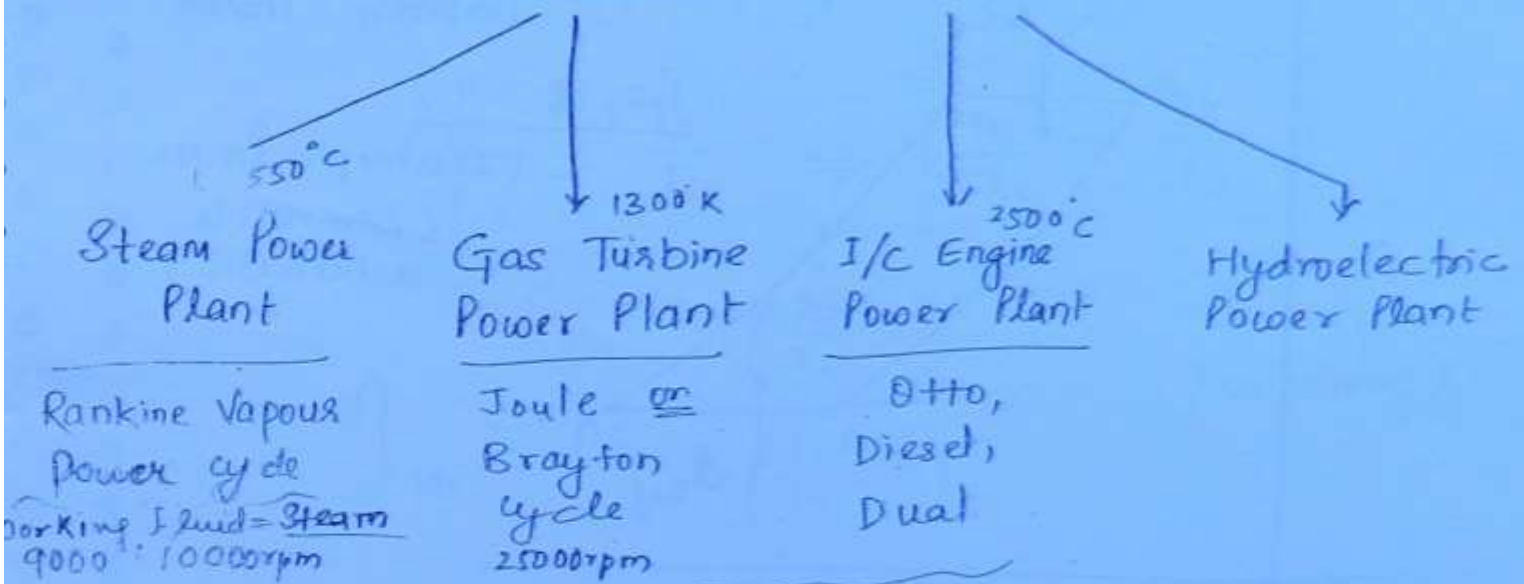 550°C
Steam Power
Plant
Rankine Vapour
Power cycle
working fluid = Steam
9000 : 10000rpm
1300°K
Gas Turbine
Power Plant
Joule or
Brayton
cycle
25000rpm
2500°C
I/C Engine
Power Plant
Otto,
Diesel,
Dual
Hydroelectric
Power Plant